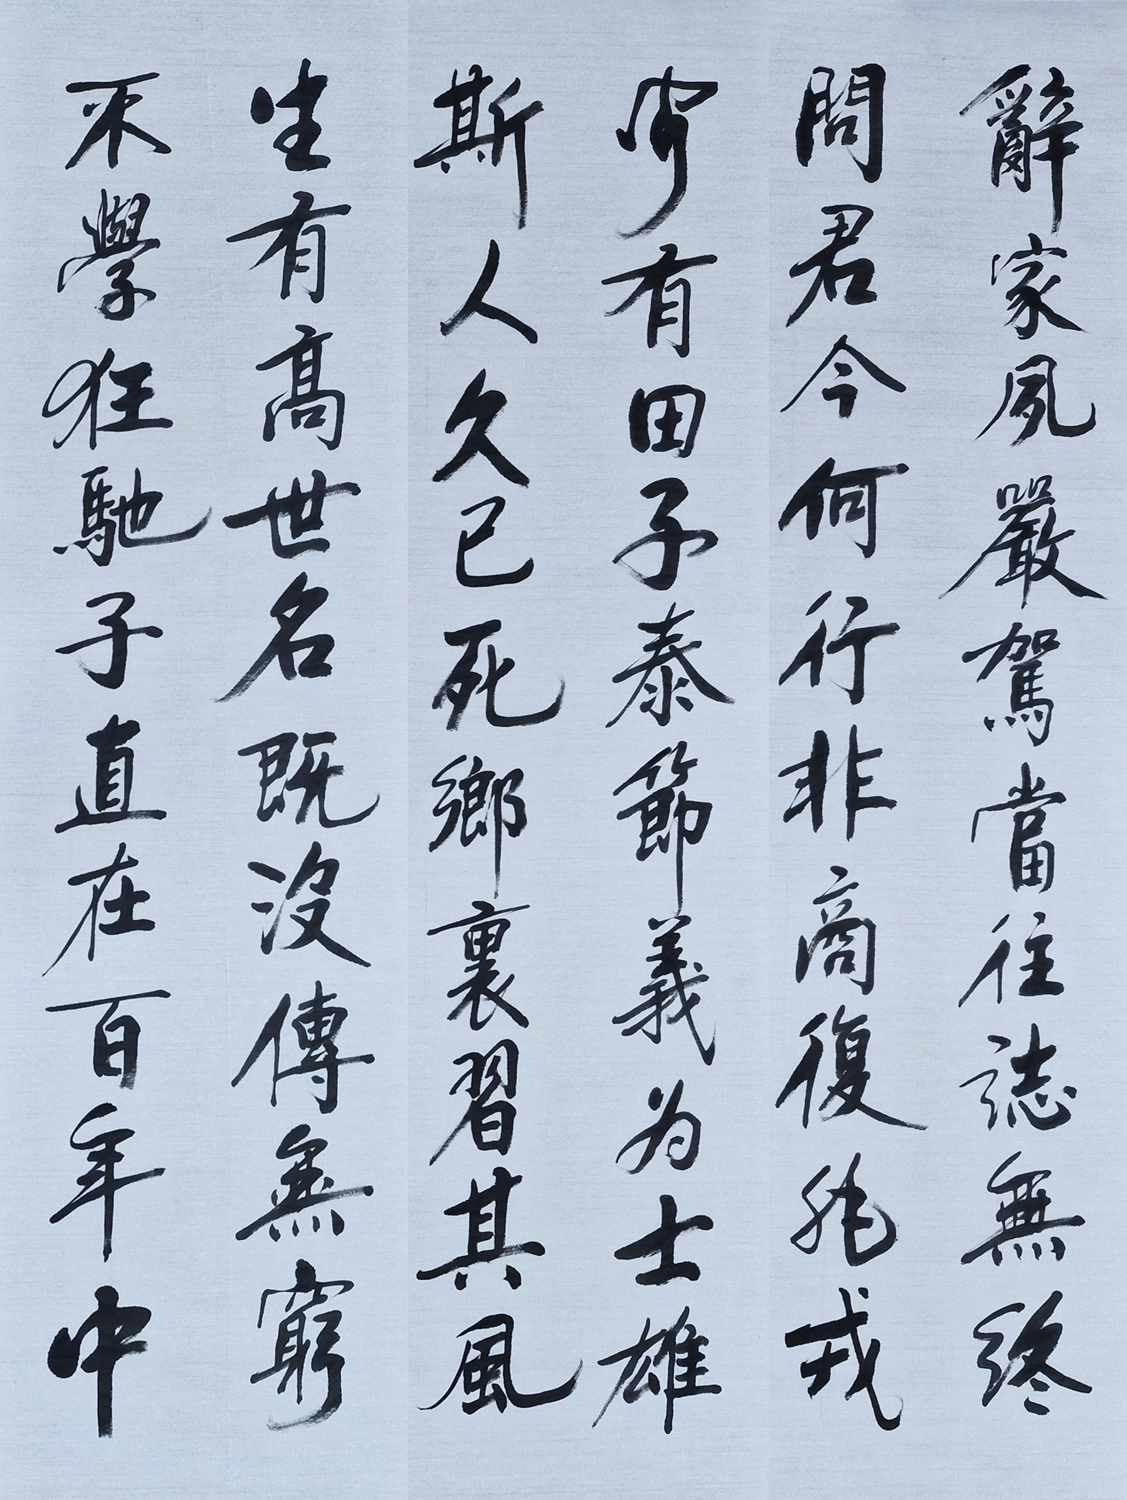 辭家夙嚴駕當往誌無終
問君今何行非商復非戎
聞有田子泰節義为士雄
斯人久已死鄉裏習其風
生有高世名既沒傳無窮
不學狂馳子直在百年中